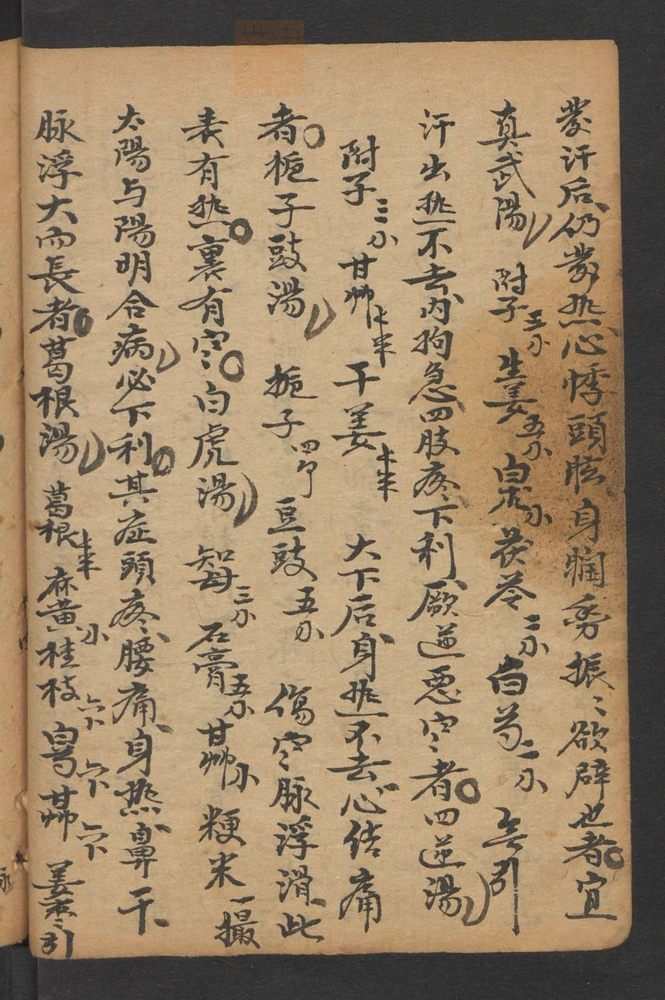 發汗后仍發热心悸頭眩身瞤動振〻欲擗地者宜
真武湯 附子五分 生姜五分 白朮分 茯苓二分 白芍二分 無引
汗出热不去内拘急四肢疼下利厥逆惡寒者四逆湯
附子三分 甘艸 干姜 大下后身热不去心结痛
者栀子豉湯 栀子四个 豆豉五分 傷寒脉浮滑此
表有热裏有寒白虎湯 知母三分 石膏五分 甘艸分 粳米一撮
太陽与陽明合病必下利其症頭疼腰痛身热鼻干
脉浮大而長者葛根湯 葛根 麻黄 桂枝 白芍 甘艸 姜枣引